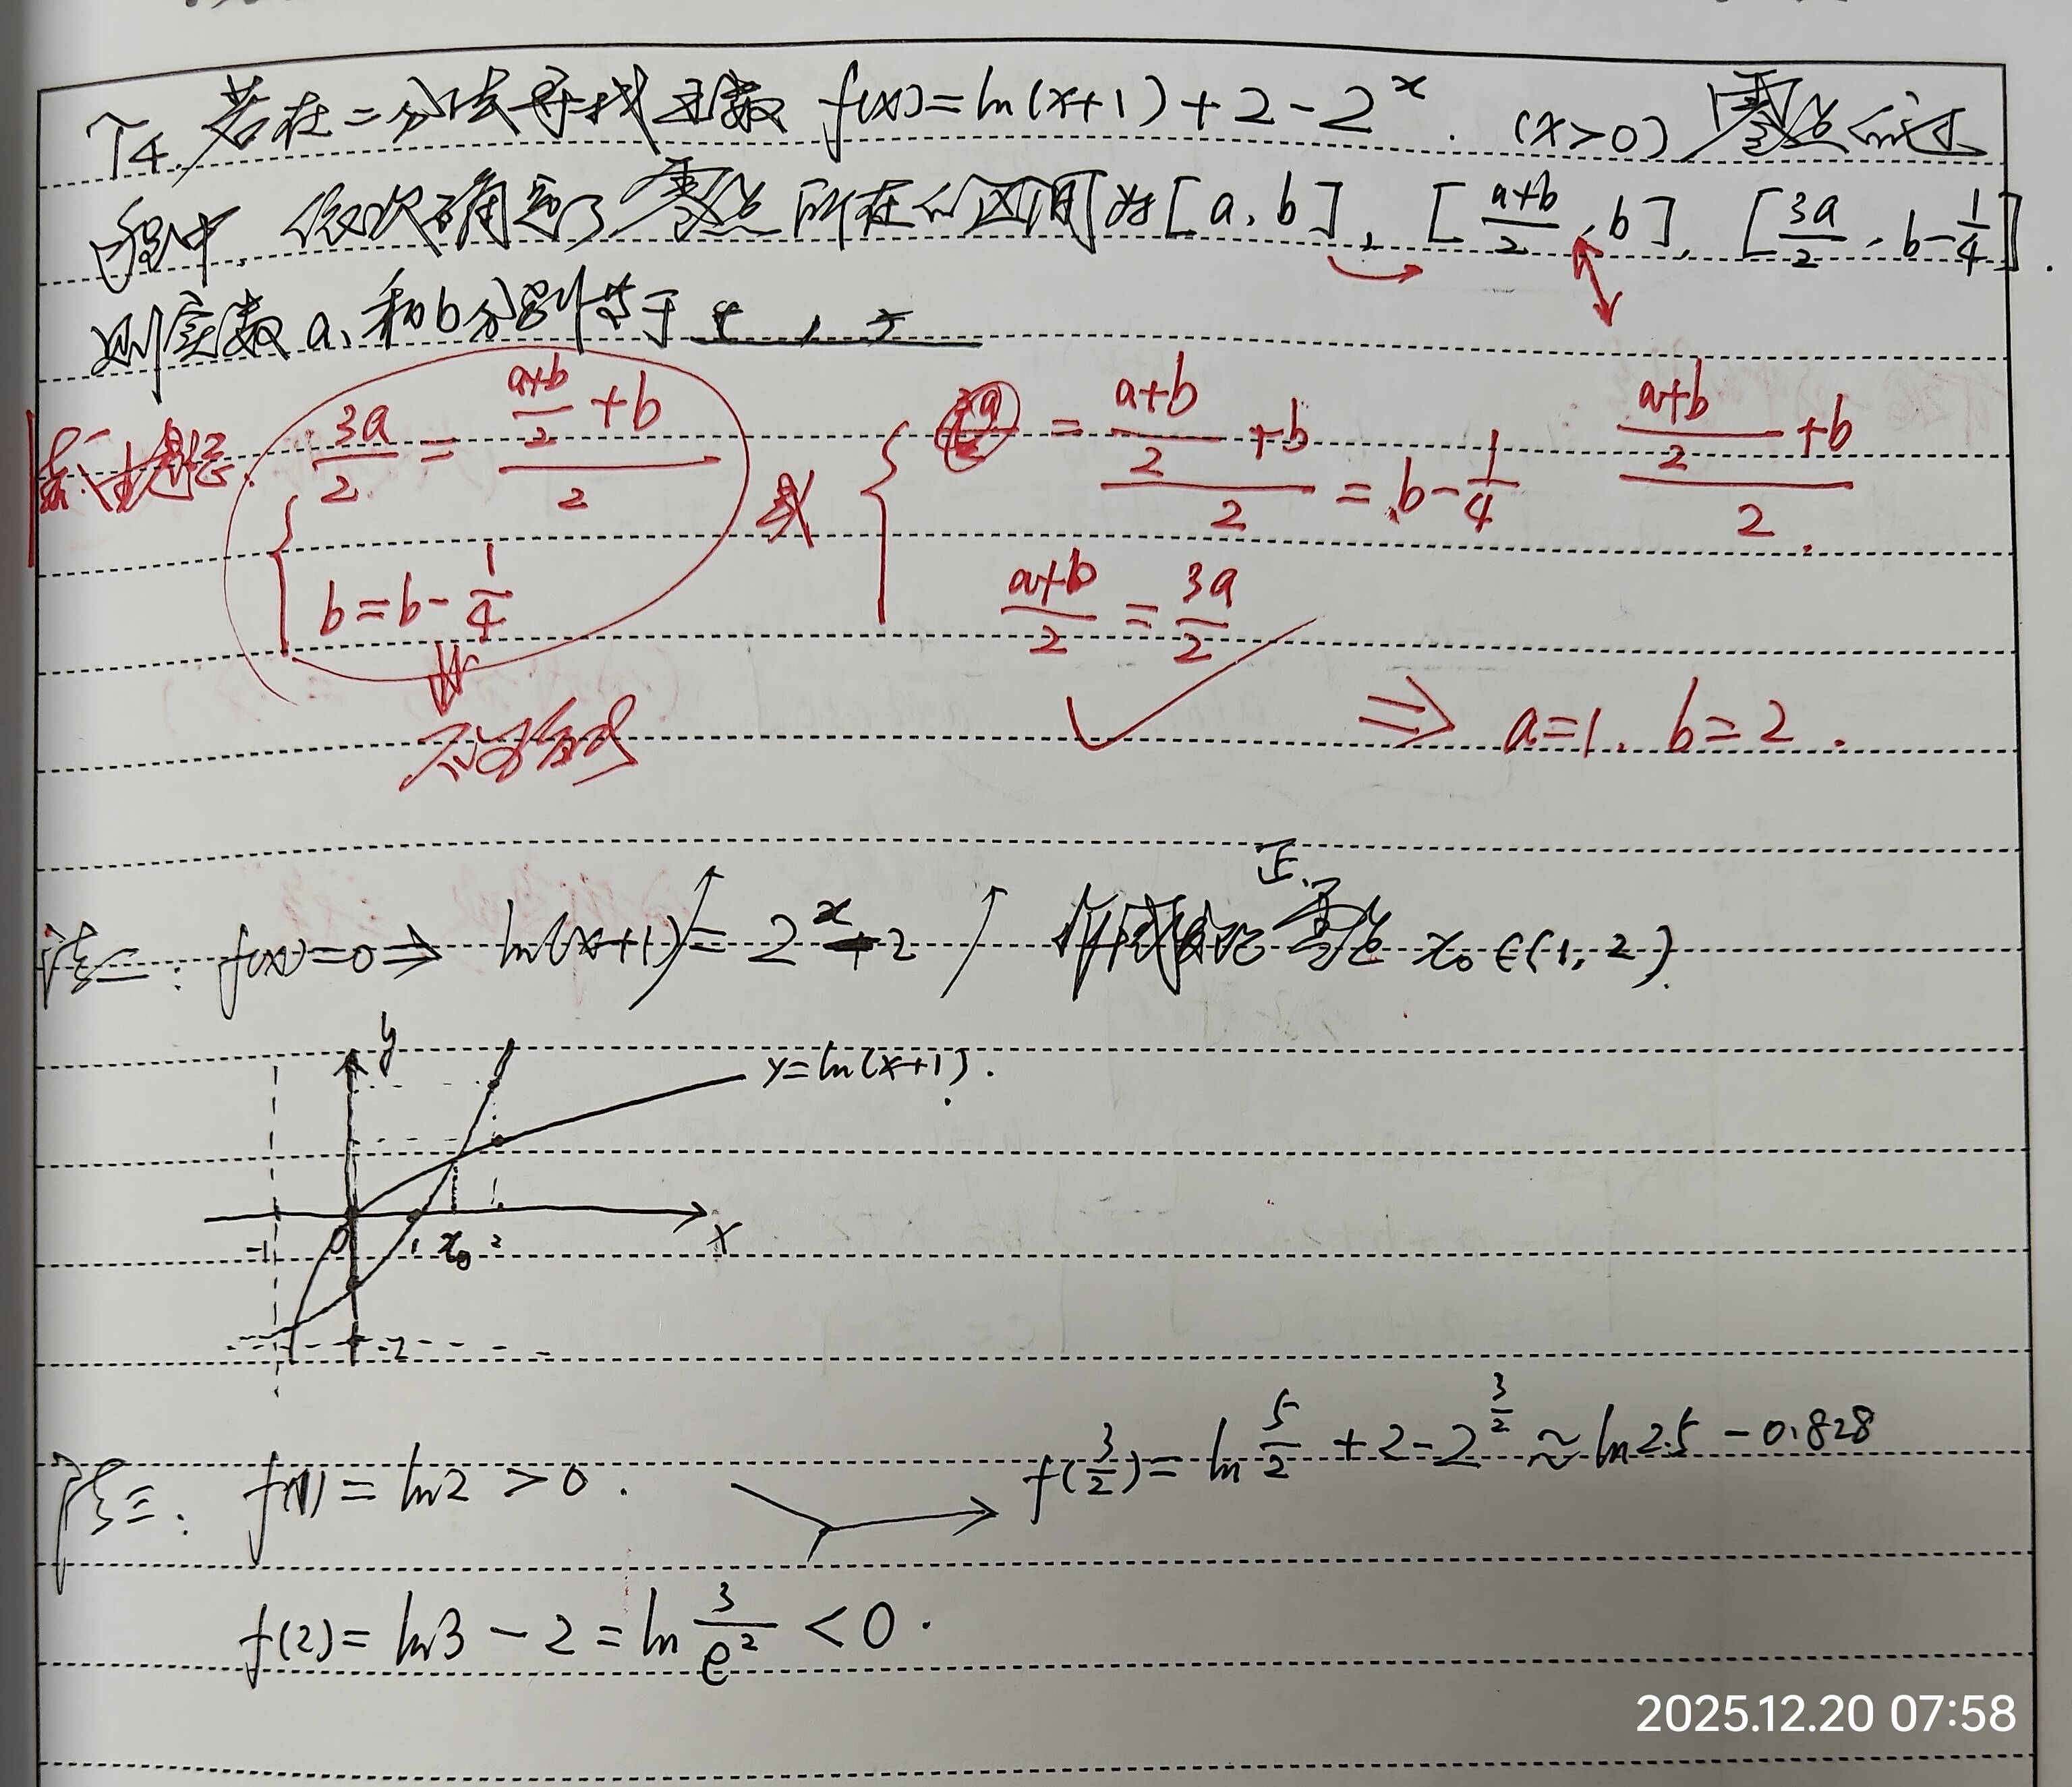 T4. 若在二分法寻找函数 f(x)=ln(x+1)+2-2^x . (x>0) 零点的过
程中, 依次确定了零点所在的区间为[a,b], [(a+b)/2, b], [3a/2, b-1/4].
则实数a、和b分别等于
由题意: { 3a/2 = ((a+b)/2+b)/2 , b=b-1/4 或 { ((a+b)/2+b)/2 = b-1/4 , (a+b)/2 = 3a/2 ((a+b)/2+b)/2 .
⇓
不可能 ✓ ⇒ a=1. b=2 .
法二: f(x)=0 ⇒ ln(x+1)=2^x-2 正零点 x₀∈(1,2).
y
y=ln(x+1).
-1 0 1 x₀ 2 x
-2
法三: f(1)=ln2>0. f(3/2)=ln5/2+2-2^(3/2)≈ln2.5-0.828
f(2)=ln3-2=ln3/e²<0.
2025.12.20 07:58